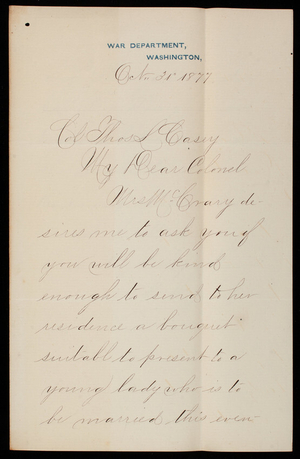 WAR DEPARTMENT,
WASHINGTON,
Oct 25 1877
Col Thos L Casey
My Dear Colonel
Mrs McCrary de-
sires me to ask you if
you will be kind
enough to send to her
residence a bouquet
suitabl to present to a
young lady who is to
be married this even-